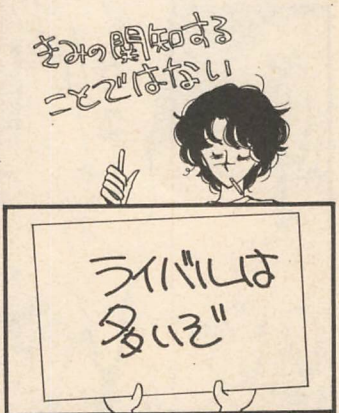 きみの関知する
ことではない
ライバルは
多いぞ